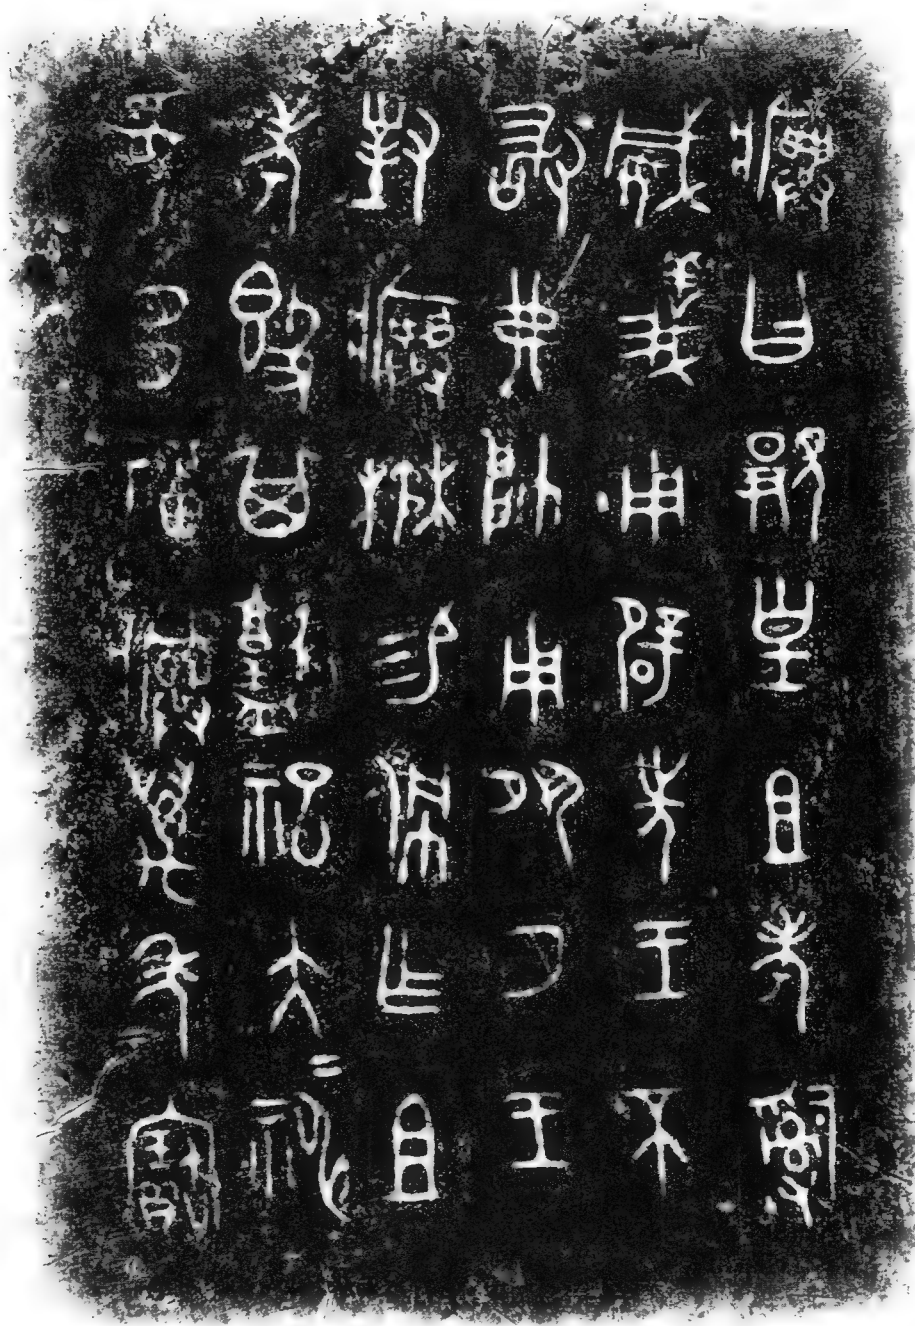 𤼈曰𩒨皇且考𤔲
威義用辟先王不
敢弗帥用夙夕王
對𤼈楙易佩乍且
考𣪘其𦎫祀大神
妥多福𤼈萬年寶